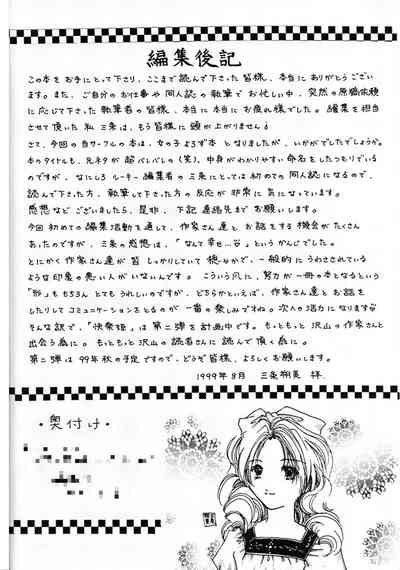 編集後記
この本をお手にとって下さり、ここまで読んで下さった皆様、本当にありがとうござい
ます。また、ご自分のお仕事や同人誌の執筆でお忙しい中、突然の原稿依頼
に応じて下さった執筆者の皆様、本当に本当にお疲れ様でした。編集を担当
させて頂いた私 三条は、もう皆様に頭が上がりません
さて、今回の当サークルの本は、女の子よろず本 となりましたが、いかがでしたでしょうか。
本のタイトルも、元ネタが超バレバレ(笑)、中身がわかりやすい命名をしたつもりでいる
のですが、なにしろ ルーキー編集者の三条にとっては初めての同人誌になるので、
読んで下さった方、執筆して下さった方の反応が非常に気になっています。
感想などございましたら、是非、下記連絡先までお願いします。
今回初めての編集活動を通して、作家さん達とお話をする機会がたくさん
あったのですが、三条の感想は、「なんて幸せ…」というかんじでした。
とにかく作家さん達が皆しっかりしていて、一般的にうわさされている
ような印象の悪い人がいないんです。こういう風に、努力が一冊の本となるという
「形」ももちろんとてもうれしいのですが、どちらかといえば、作家さん達とお話を
したりしてコミュニケーションをとるのが一番の楽しみですね。次への活力になります
そんな訳で、「快祭姫」は第二弾を計画中です。もっともっと沢山の作家さんと
出会う為に。もっともっと沢山の読者さんに読んで頂く為に。
第二弾は99年秋の予定ですので、どうぞ皆様、よろしくお願いします。
1999年8月 三条 拝
・奥付け・